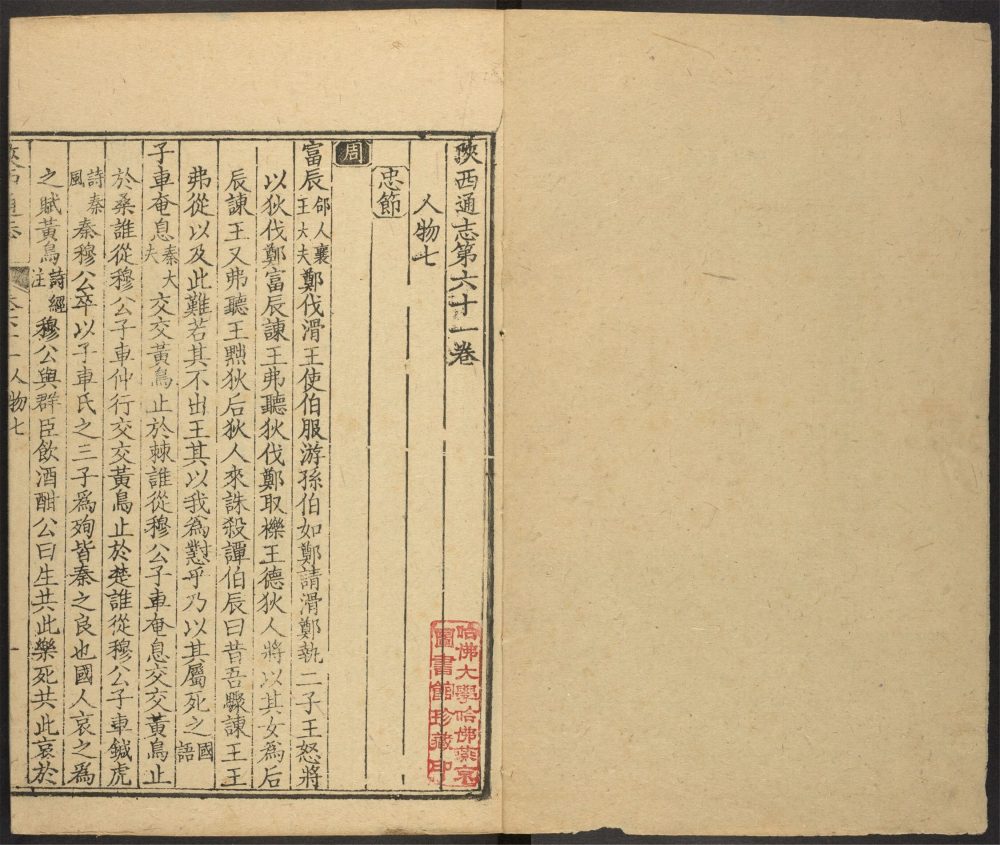 陝西通志第六十一卷
人物七
忠節
周
富辰郃人襄王大夫鄭伐滑王使伯服游孫伯如鄭請滑鄭執二子王怒將
以狄伐鄭富辰諫王弗聽狄伐鄭取櫟王德狄人將以其女為后
辰諫王又弗聽王黜狄后狄人來誅殺譚伯辰曰昔吾驟諫王王
弗從以及此難若其不出王其以我為懟乎乃以其屬死之國語
子車奄息秦大夫交交黃鳥止於棘誰從穆公子車奄息交交黃鳥止
於桑誰從穆公子車仲行交交黃鳥止於楚誰從穆公子車鍼虎
詩秦風秦穆公卒以子車氏之三子為殉皆秦之良也國人哀之為
之賦黃鳥詩經注穆公與群臣飲酒酣公曰生共此樂死共此哀於
人物七
一
哈佛大學哈佛燕京
圖書館珍藏印